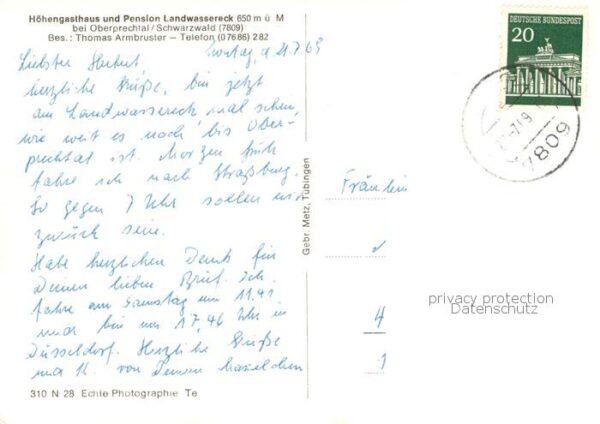 Höhengasthaus und Pension Landwassereck 650 m ü M
bei Oberprechtal / Schwarzwald (7809)
Bes.: Thomas Armbruster — Telefon (07686) 282
Sonntag, d 21.7.69
Liebster Herbert
herzliche Grüße, bin jetzt
am Landwassereck mal sehen,
wie weit es noch bis Ober-
prechtal ist. Morgen früh
fahre ich nach Straßburg.
So gegen 7 Uhr sollen wir
zurück sein.
Habe herzlichen Dank für
Deinen lieben Brief. Ich
fahre am Samstag um 11.41
und bin um 17,46 Uhr in
Düsseldorf. Herzliche Grüße
und K. von Deinem
310 N 28 Echte Photographie Te
Gebr. Metz, Tübingen
DEUTSCHE BUNDESPOST
20
7809
Fräulein
4
1
privacy protection
Datenschutz